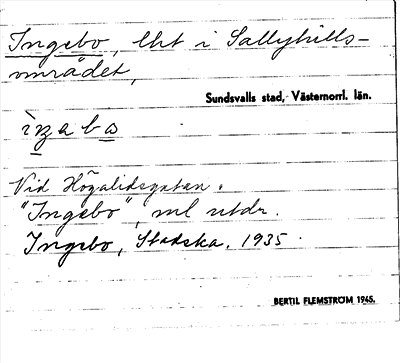 Ingebo, lht i Sallyhills-
området,
Sundsvalls stad, Västernorrl. län.
ìŋabω
Vid Högalidsgatan.
"Ingebo", enl utdr.
Ingebo, Stadska. 1935.
BERTIL FLEMSTRÖM 1945.